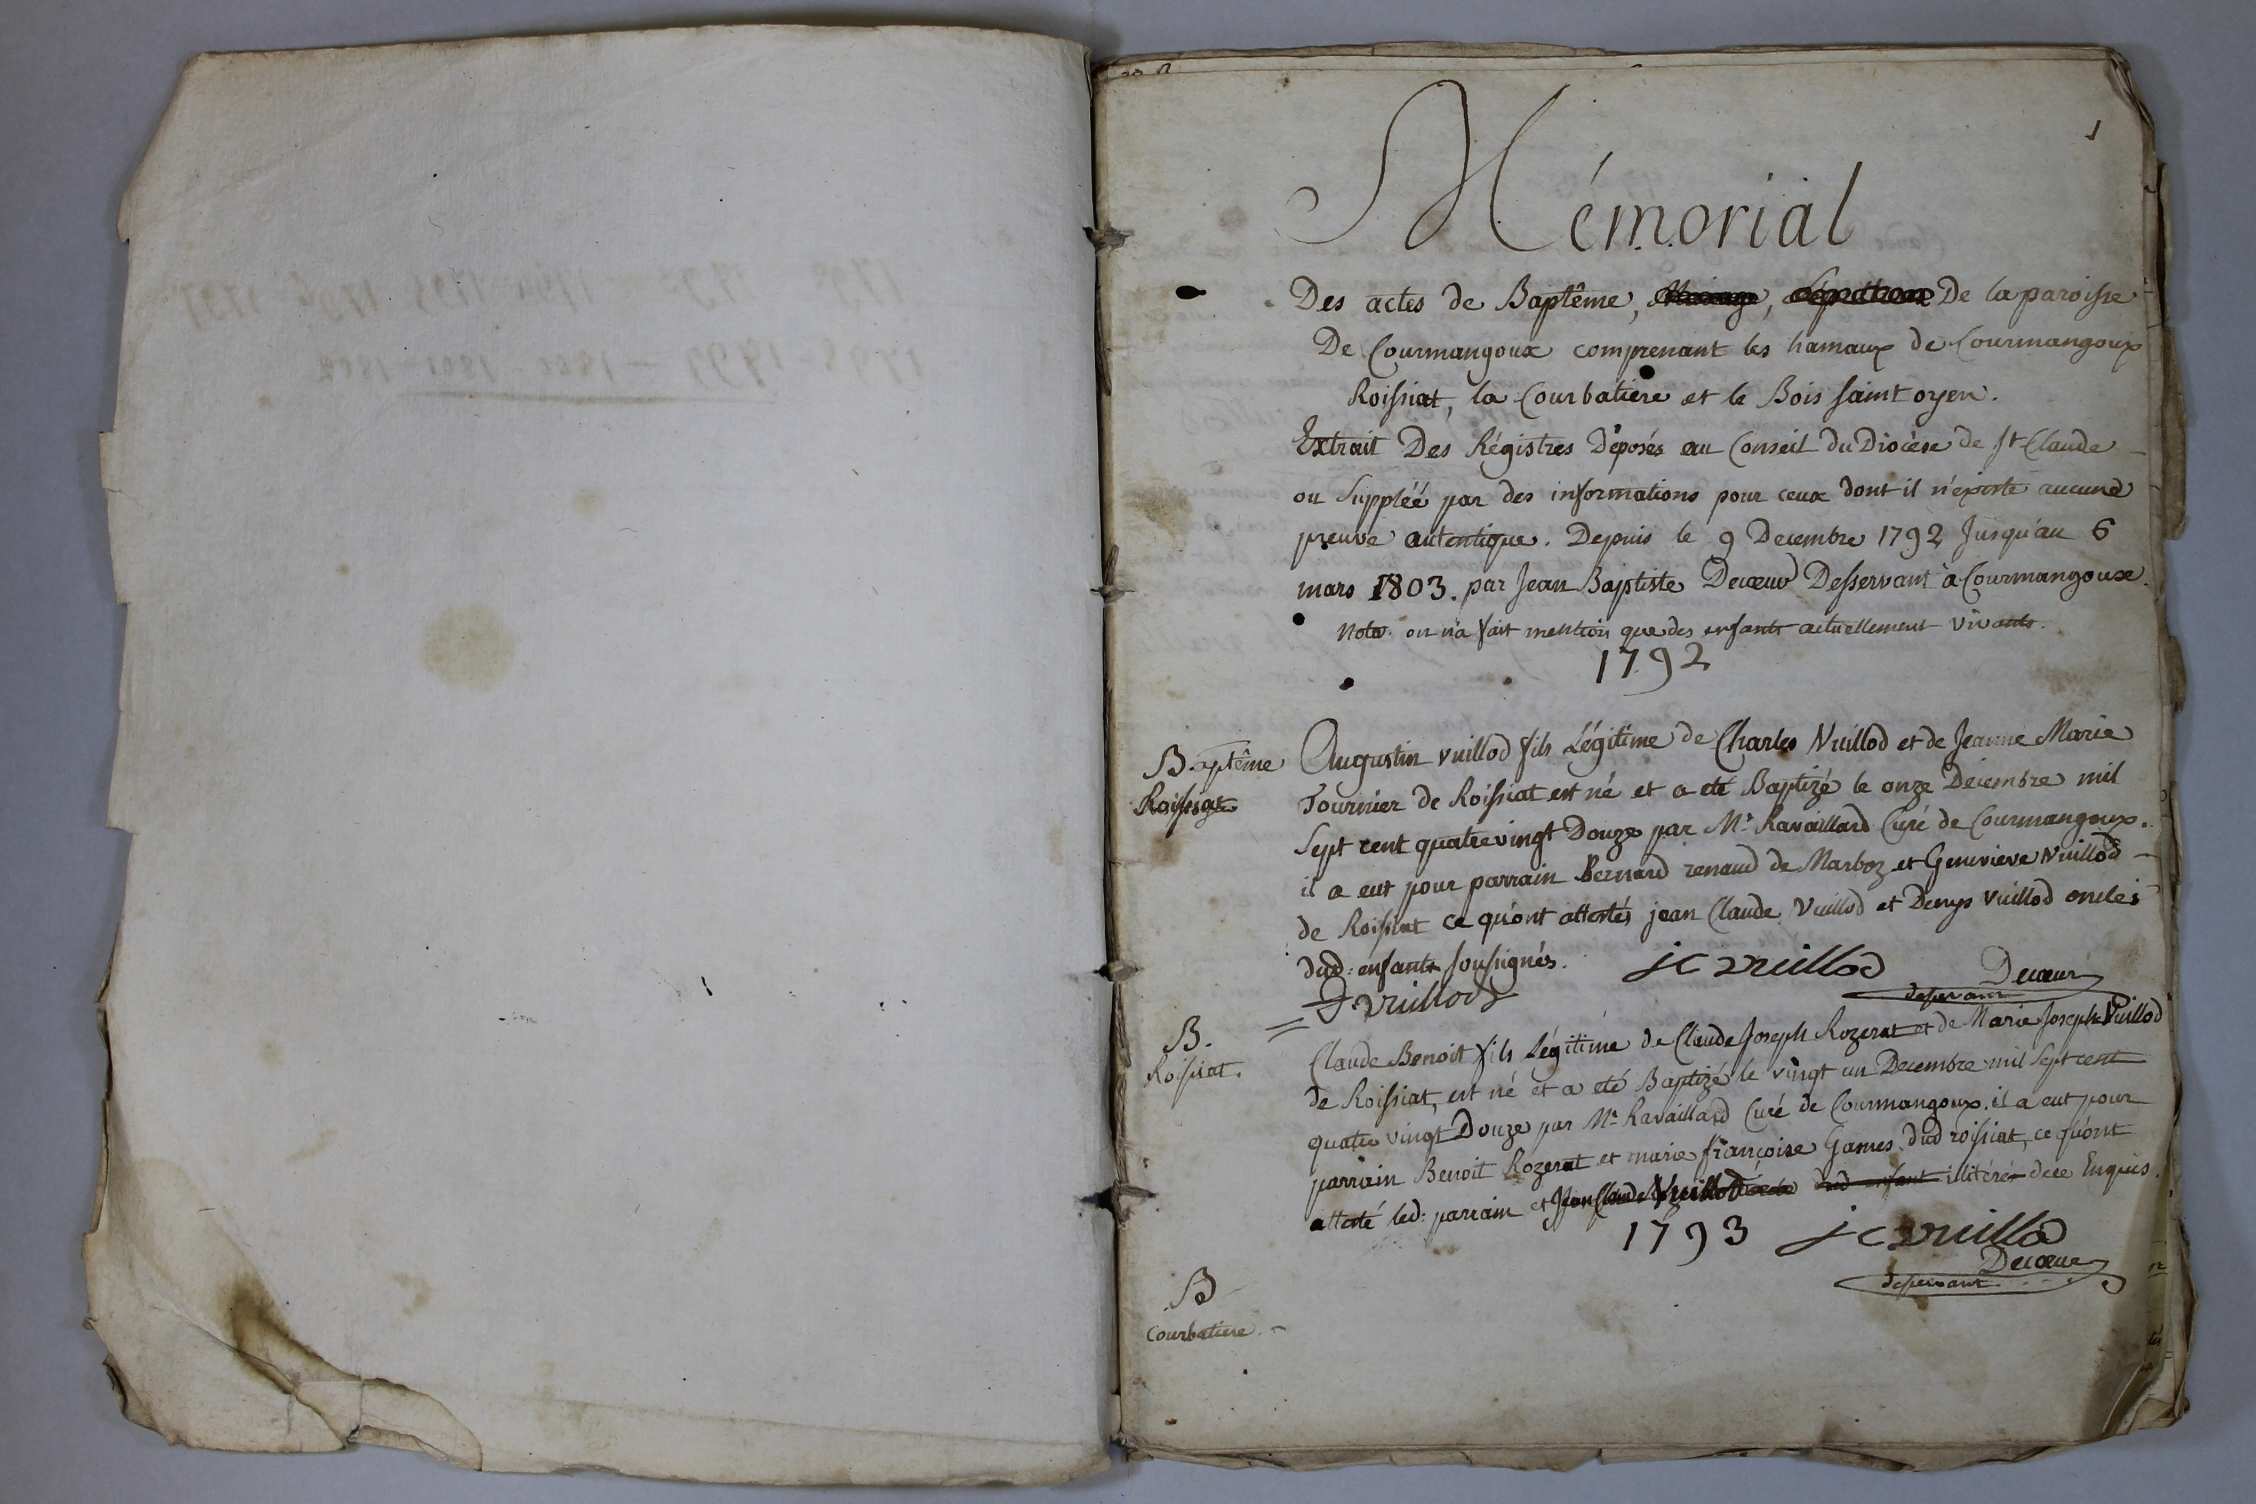 1
Mémorial
Des actes de Baptême, Mariage, Sépulture De la paroisse
De Courmangoux comprenant les hamaux de Courmangoux
Roissiat, la Courbatiere et le Bois saint oyen.
Extrait Des Régistres Déposés au Conseil du Diocèse de St Claude
ou Suppléé par des informations pour ceux dont il n'existe aucune
preuve autentique. Depuis le 9 Decembre 1792 Jusqu'au 6
mars 1803. par Jean Baptiste Decœur Desservant à Courmangoux.
Nota. on n'a fait mention que des enfants actuellement vivants.
1792
Baptême
Roissiat
Augustin vuillod fils Légitime de Charles Vuillod et de Jeanne Marie
Tournier de Roissiat est né et a eté Baptizé le onze Decembre mil
Sept cent quatrevingt Douze par Mr Ravaillard Curé de Courmangoux.
il a eut pour parrain Bernard renaud de Marboz et Genevieve Vuillod
de Roissiat ce qu'ont attestés jean Claude Vuillod et Denys Vuillod oncles
dud: enfants soussignés.
jc vuillod
Decœur
desservant
D vuillod
B.
Roissiat.
Claude Benoit fils Légitime de Claude Joseph Rozerat et de Marie Joseph Vuillod
de Roissiat, est né et a eté Baptizé le vingt un Decembre mil Sept cent
quatre vingt Douze par Mr Ravaillard Curé de Courmangoux. il a eut pour
parrain Benoit Rozerat et marie françoise Games dud roissiat, ce qu'ont
attesté led: parrain et Jean Claude Vuillod dud enfant illitéré de ce Enquis.
1793
jc vuillod
Decœur
desservant
B
Courbatiere.